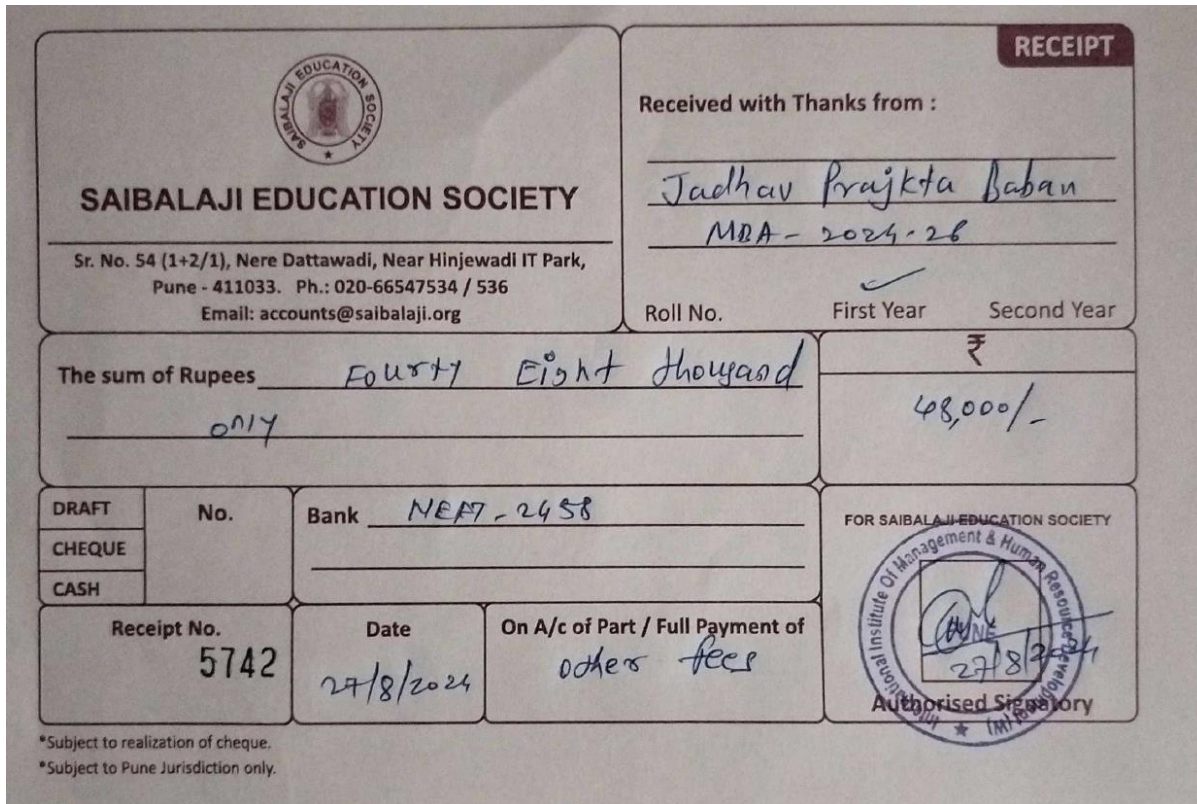 SAIBALAJI EDUCATION SOCIETY
SAIBALAJI EDUCATION SOCIETY
Sr. No. 54 (1+2/1), Nere Dattawadi, Near Hinjewadi IT Park,
Pune - 411033. Ph.: 020-66547534 / 536
Email: accounts@saibalaji.org
RECEIPT
Received with Thanks from :
Jadhav Prajkta Baban
MBA - 2024-26
Roll No. First Year Second Year
The sum of Rupees Fourty Eight thousand
only
₹
48,000/-
DRAFT
CHEQUE
CASH
No.
Bank NEFT - 2458
FOR SAIBALAJI EDUCATION SOCIETY
International Institute Of Management & Human Resource Development (W)
PUNE
27/8/2024
Authorised Signatory
Receipt No.
5742
Date
27/8/2024
On A/c of Part / Full Payment of
other fees
*Subject to realization of cheque.
*Subject to Pune Jurisdiction only.